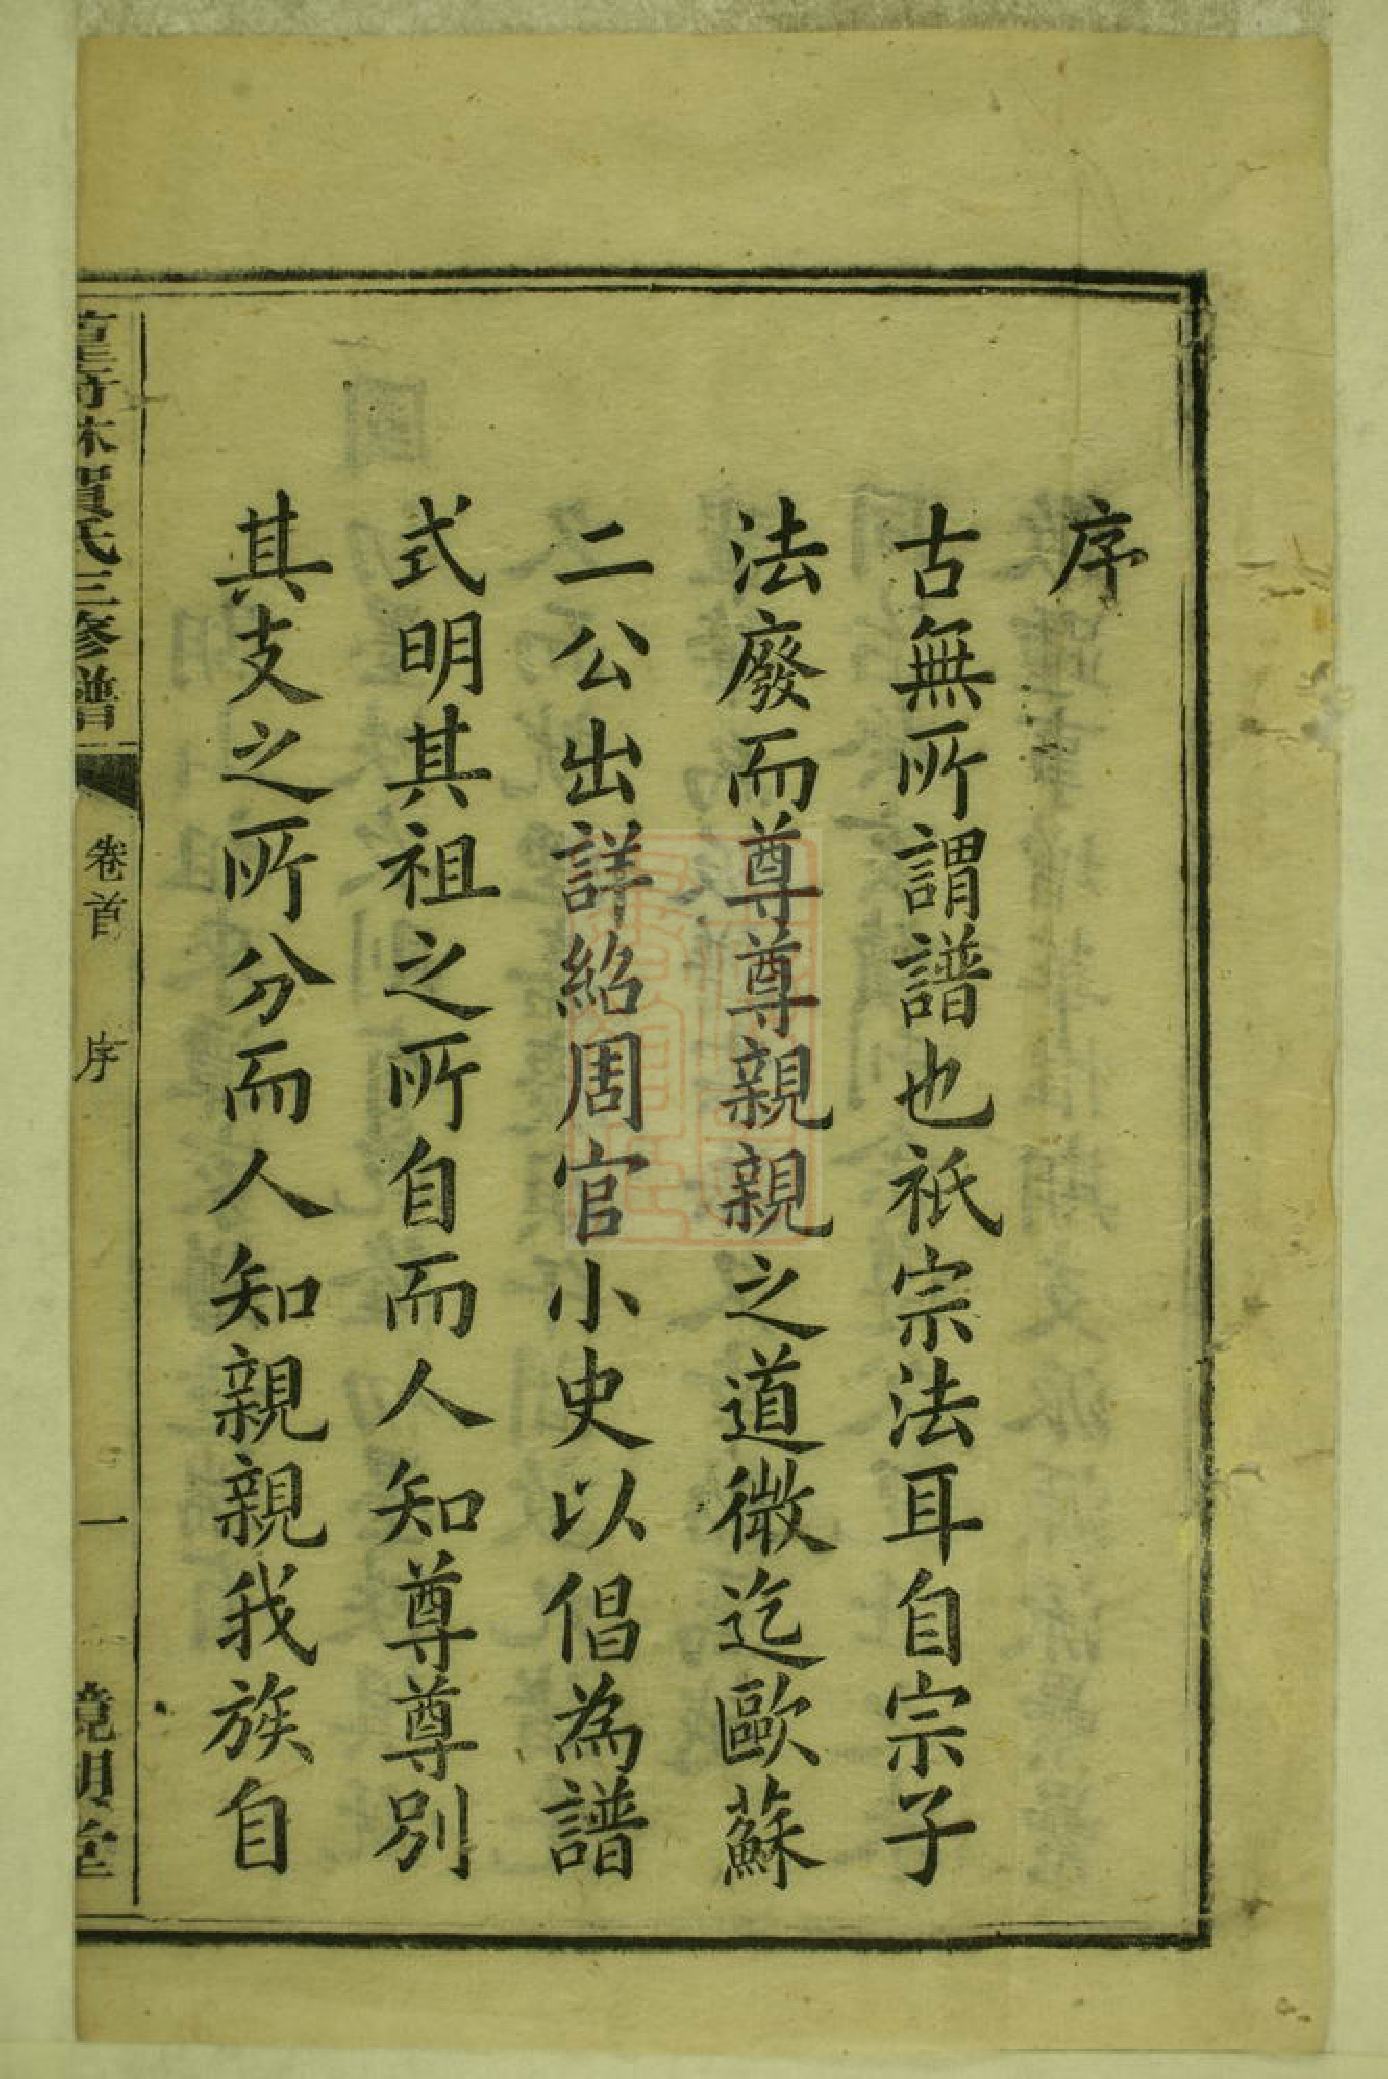 序
古無所謂譜也祇宗法耳自宗子
法廢而尊尊親親之道微迄歐蘇
二公出詳紹周官小史以倡為譜
式明其祖之所自而人知尊尊別
其支之所分而人知親親我族自
竹林賀氏三修譜
卷首
序
一
鏡明堂